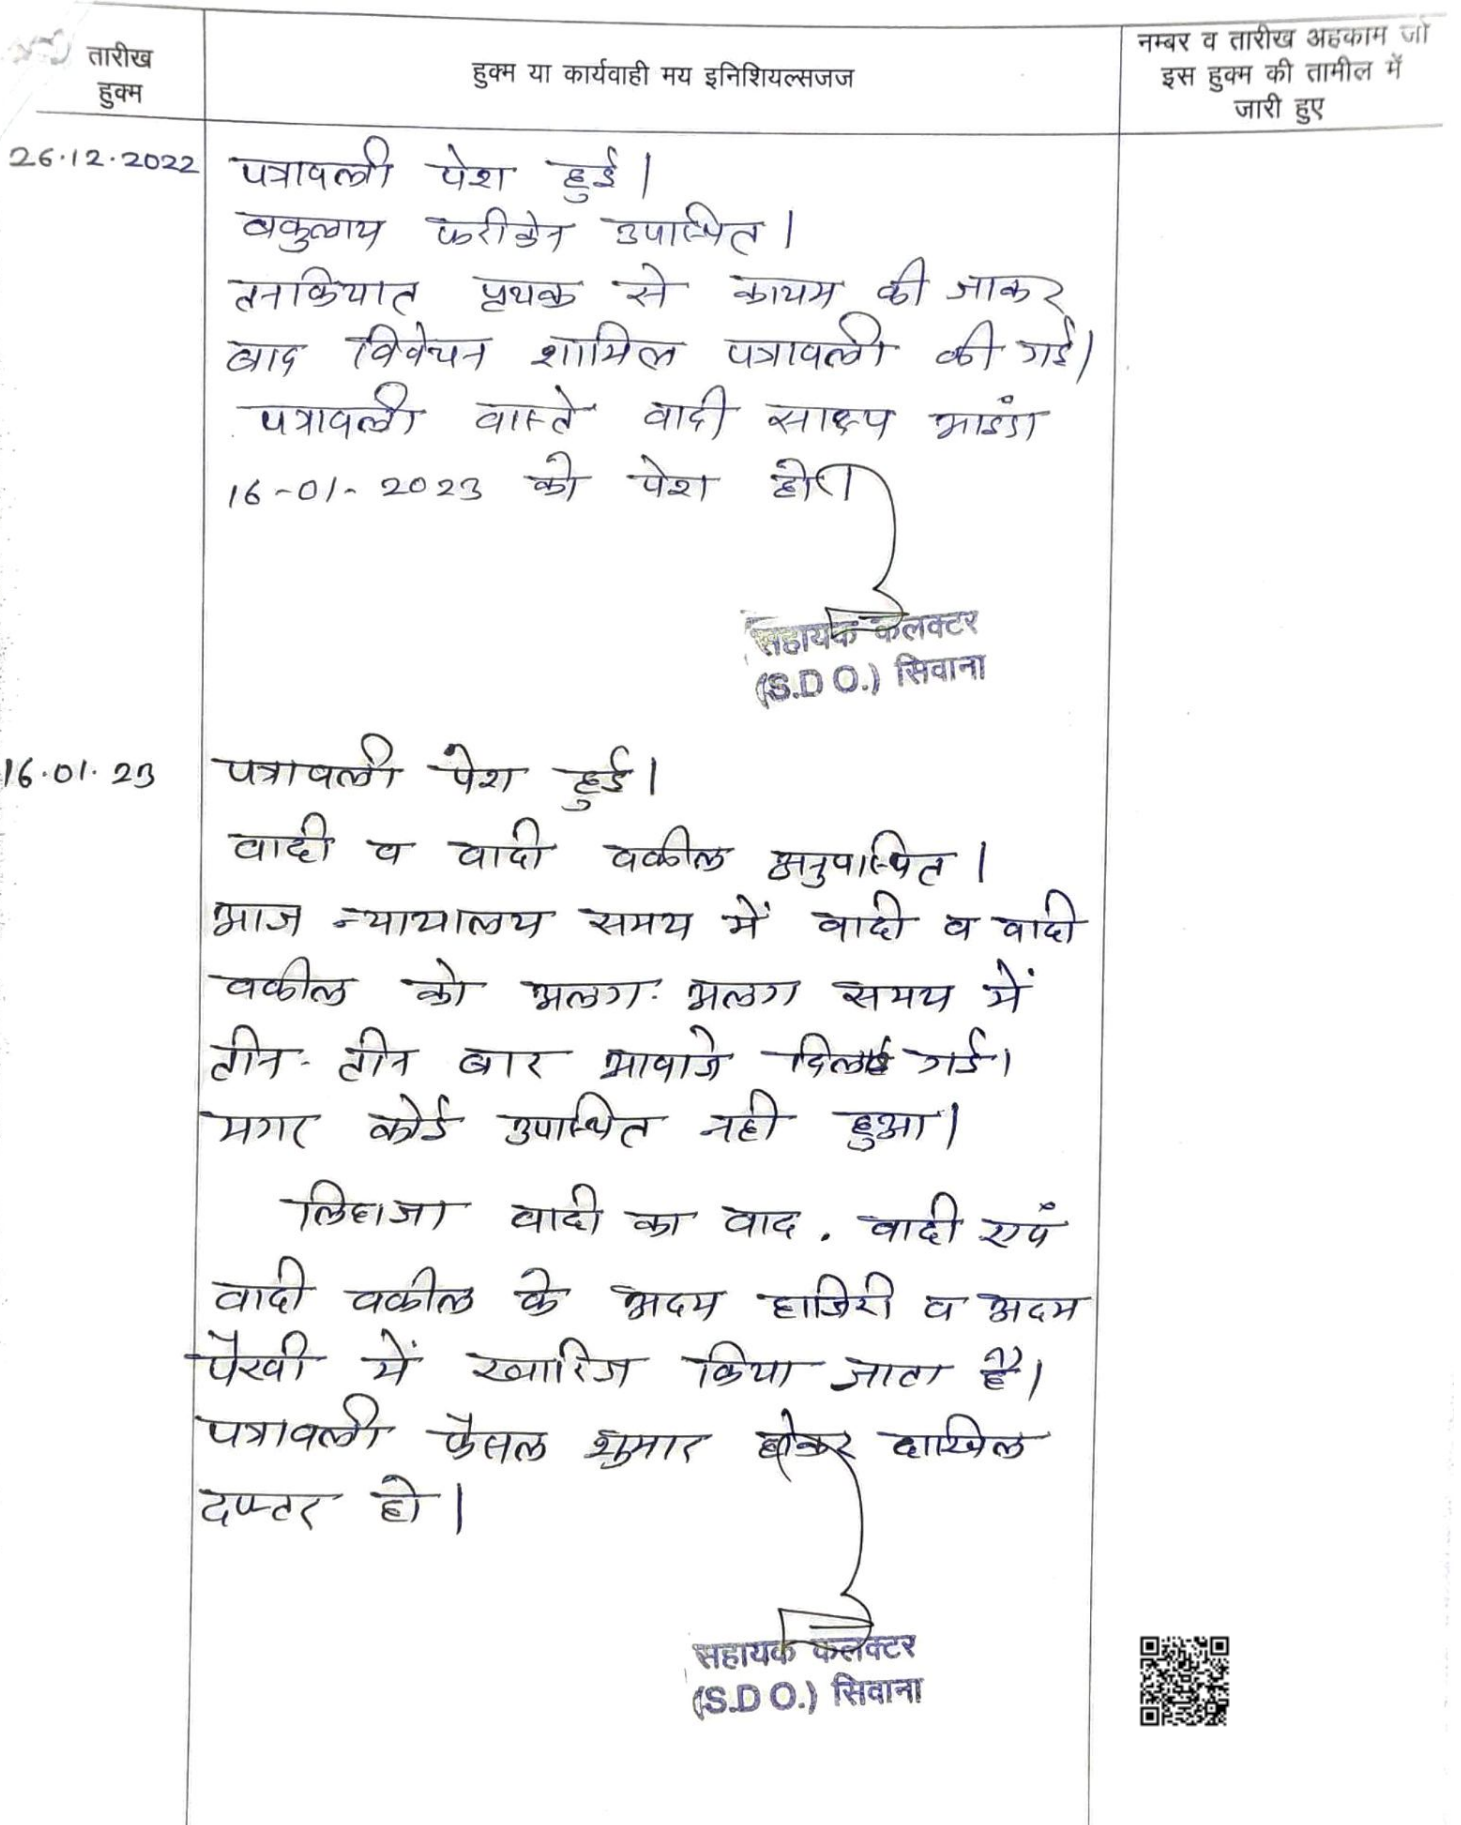 तारीख
हुक्म
हुक्म या कार्यवाही मय इनिशियल्सजज
नम्बर व तारीख अहकाम जो
इस हुक्म की तामील में
जारी हुए
26.12.2022
पत्रावली पेश हुई।
वकुलाय फरीकेन उपास्थित।
तनकियात पृथक से कायम की जाकर
बाद विवेचन शामिल पत्रावली की गई।
पत्रावली वास्ते वादी साक्ष्य
16-01-2023 को पेश हो।
सहायक कलक्टर
(S.D O.) सिवाना
16.01.23
पत्रावली पेश हुई।
वादी व वादी वकील अनुपास्थित।
आज न्यायालय समय में वादी व वादी
वकील को अलग-अलग समय में
तीन-तीन बार आवाजे दिलाई गई।
मगर कोई उपास्थित नही हुआ।
लिहाजा वादी का वाद, वादी एवं
वादी वकील के अदम हाजिरी व अदम
पैरवी में खारिज किया जाता है।
पत्रावली फैसल शुमार होकर दाखिल
दफ्तर हो।
सहायक कलक्टर
(S.D O.) सिवाना